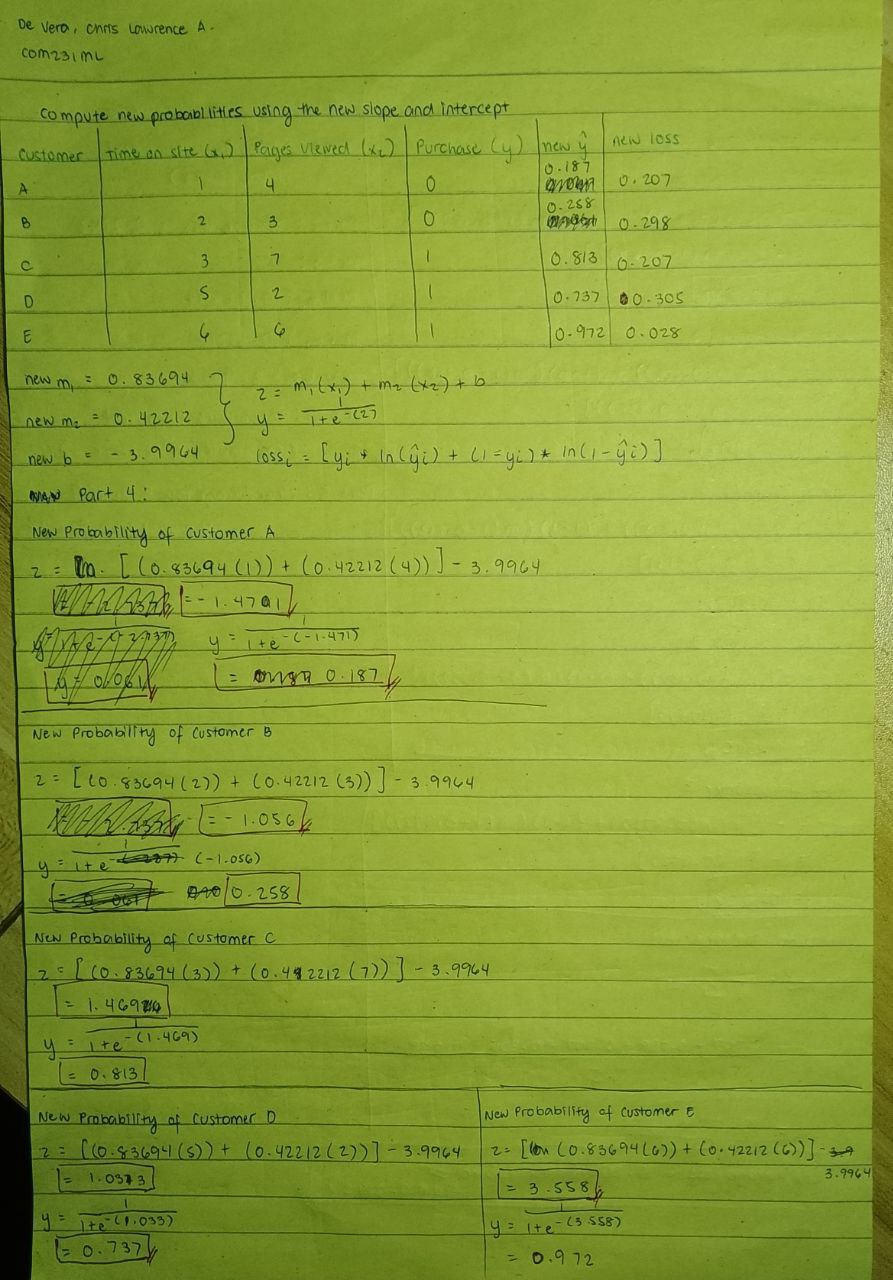 De Vera, Chris Lawrence A.
COM231ML
Compute new probabilities using the new slope and intercept
Customer Time on site (x₁) Pages Viewed (x₂) Purchase (y) new ŷ new loss
A 1 4 0 0.187 0.207
B 2 3 0 0.258 0.298
C 3 7 1 0.813 0.207
D 5 2 1 0.737 0.305
E 6 6 1 0.972 0.028
new m₁ = 0.83694
new m₂ = 0.42212
new b = -3.9964
z = m₁(x₁) + m₂(x₂) + b
y = 1/1+e^-(z)
loss i = [yi * ln(ŷi) + (1-yi) * ln(1-ŷi)]
Part 4:
New Probability of Customer A
z = [(0.83694(1)) + (0.42212(4))] - 3.9964
= -1.4701
y = 1/1+e^-(-1.471)
y = 0.061
= 0.187
New Probability of Customer B
z = [(0.83694(2)) + (0.42212(3))] - 3.9964
= -1.056
y = 1/1+e^- (-1.056)
0.258
New Probability of Customer C
z = [(0.83694(3)) + (0.42212(7))] - 3.9964
= 1.469
y = 1/1+e^-(1.469)
= 0.813
New Probability of Customer D
z = [(0.83694(5)) + (0.42212(2))] - 3.9964
= 1.033
y = 1/1+e^-(1.033)
= 0.737
New Probability of Customer E
z = [(0.83694(6)) + (0.42212(6))] - 3.9964
= 3.558
y = 1/1+e^-(3.558)
= 0.972